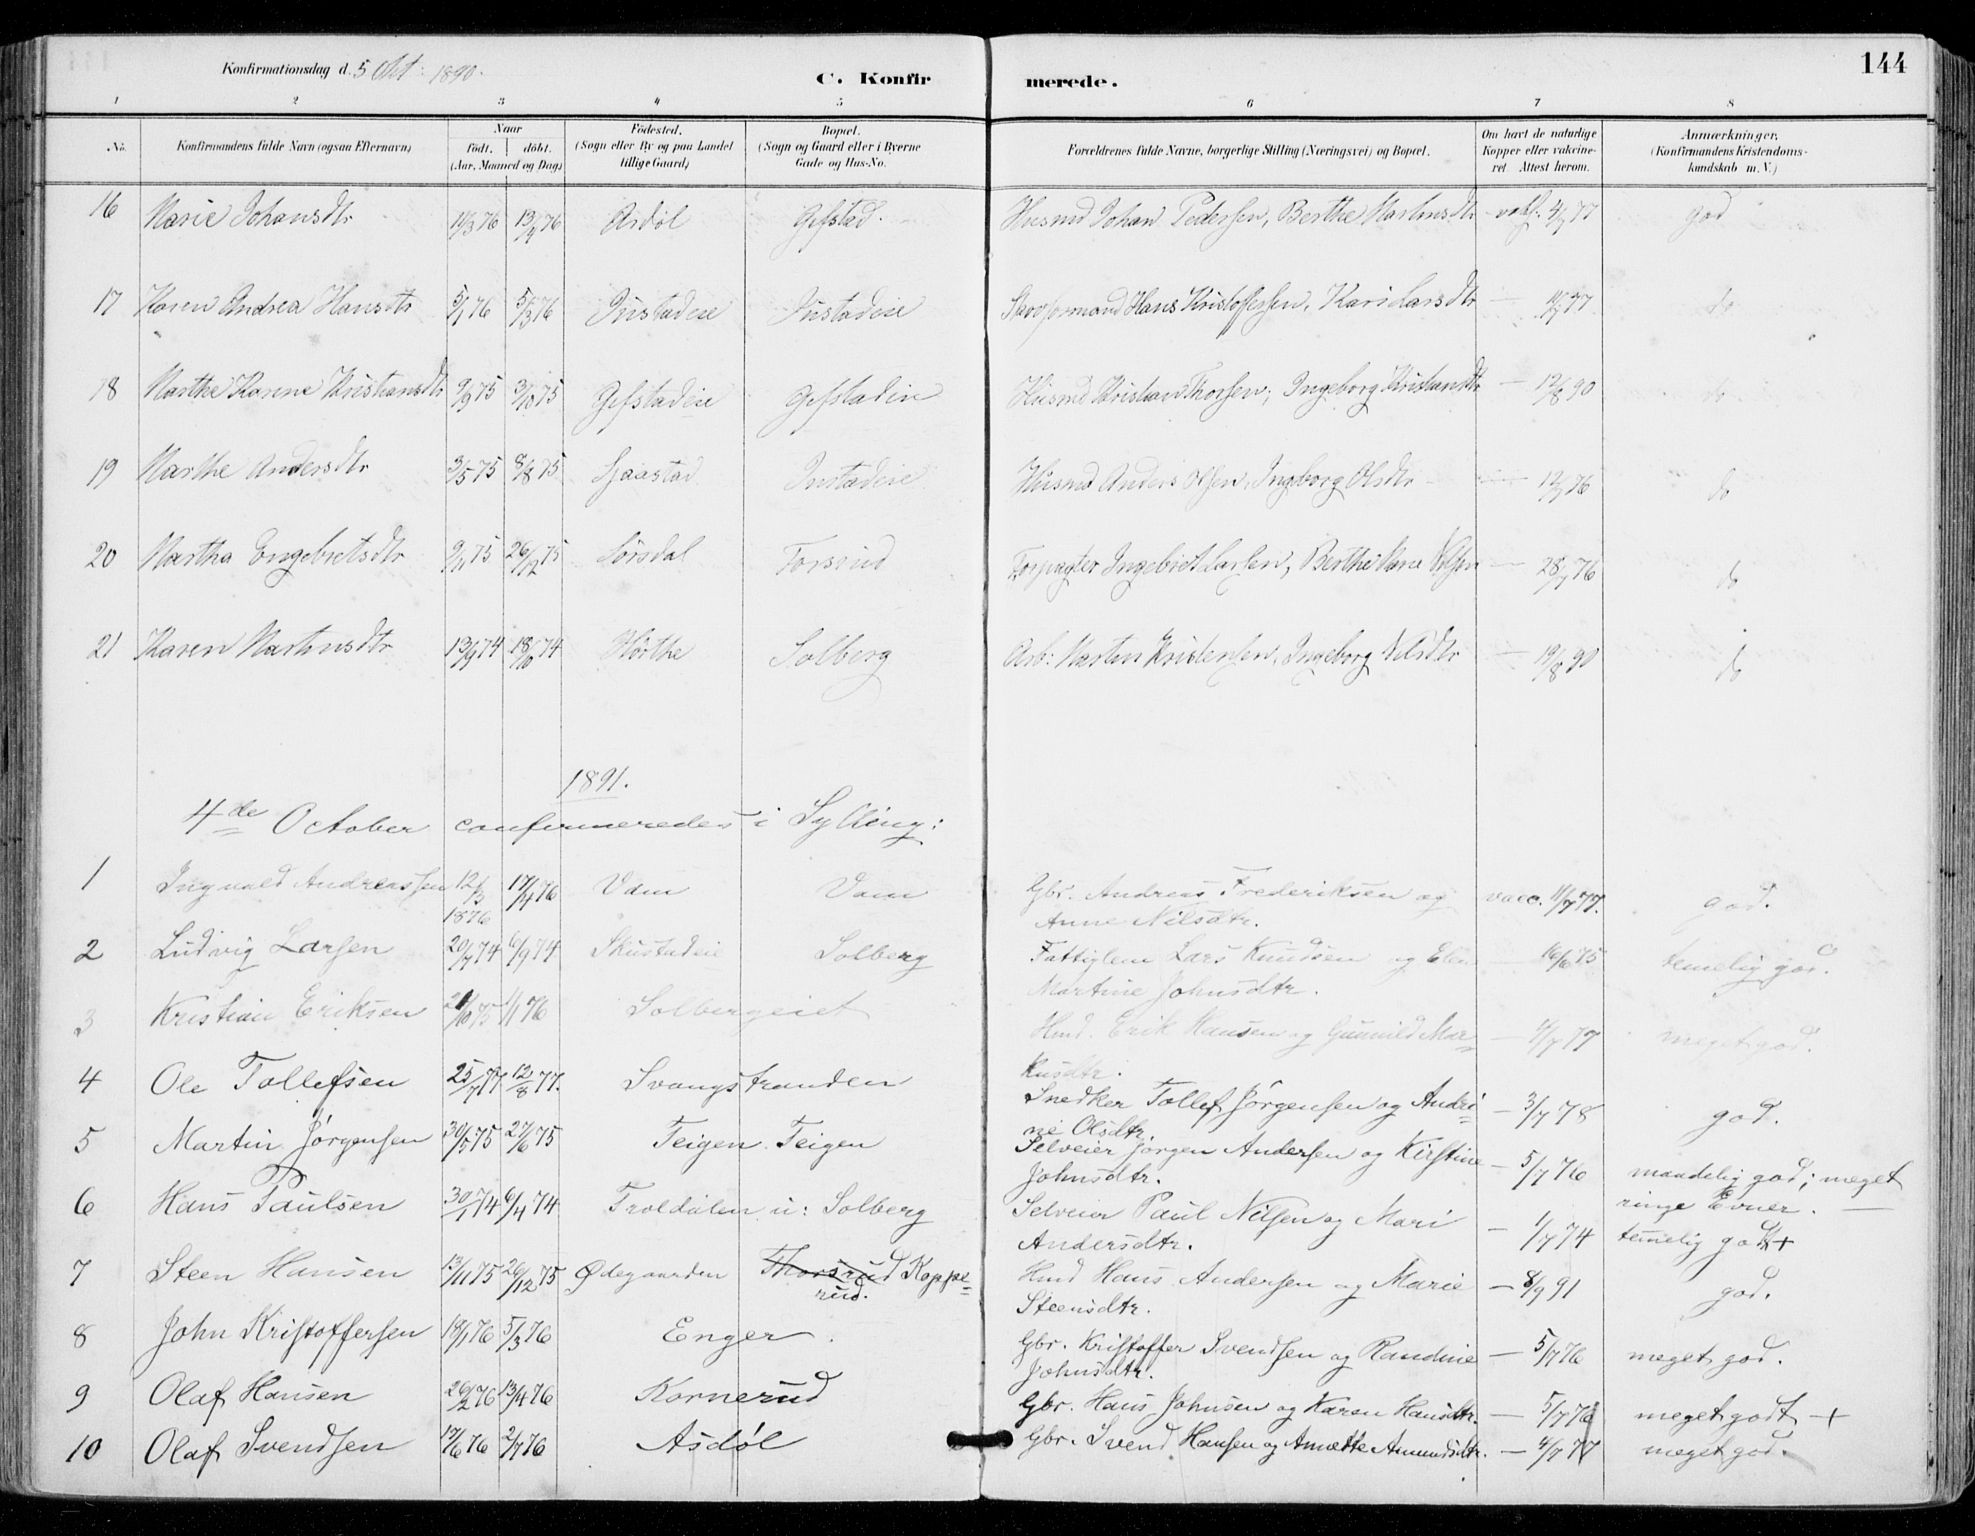 Konfirmationsdag d. 5 Okt. 1890.
C. Konfirmerede.
144
1 2 3 4 5 6 7 8
No. Konfirmandens fulde Navn (ogsaa Efternavn) Naar født. døbt. (Aar, Maaned og Dag) Fødested. (Sogn eller By og paa Landet tillige Gaard) Bopæl. (Sogn og Gaard eller i Byerne Gade og Hus-No. Forældrenes fulde Navne, borgerlige Stilling (Næringsvei) og Bopæl. Om havt de naturlige Kopper eller vakcineret. Attest herom. Anmærkninger. (Konfirmandens Kristendomskundskab m. V.)
16 Marie Johansdtr 11/3 76 13/4 76 Asdøl Gifstad. Husmd Johan Pedersen, Berthe Martinsdtr 4/7 77 god
17 Karen Andrea Hansdtr 5/1 76 5/3 76 Justadeie Justadeie Hans Kristoffersen, Kari Larsdtr — 11/7 77 do
18 Marthe Karine Kristiansdtr 9/9 75 3/10 75 Gifstadeie Gifstadeie Husmd Kristian Thorsen; Ingeborg Kristiansdtr — 12/8 90 do
19 Marthe Andersdtr 3/5 75 8/8 75 Sjaastad Justadeie Husmd Anders Olsen, Ingeborg Olsdtr — 12/7 76 do
20 Martha Engebretsdtr 9/11 75 26/12 75 Sørsdal Forsrud Forpagter Ingebret Larsen, Berthe Marie Nilsen — 28/7 76 do
21 Karen Martinsdtr 13/9 74 18/10 74 Hørthe Solberg Arb: Martin Kristensen, Ingeborg Nilsdtr — 19/8 90 do
1891.
4de October confirmeredes i Sylling:
1 Ingvald Andreassen 12/3 1876 17/4 76 Vam Vam Gbr. Andreas Frederiksen og Anne Nilsdtr. vacc. 11/7 77. god.
2 Ludvig Larsen 20/7 74 6/9 74 Skustadeie Solberg Fattiglem Lars Knudsen og Elen Martine Johnsdtr. — 16/6 75 temelig god.
3 Kristian Eriksen 21/10 75 1/1 76 Solbergeiet Hmd. Erik Hansen og Gunnild Markusdtr. — 4/7 77 meget god.
4 Ole Tollefsen 25/7 77. 12/8 77. Svangstranden Snedker Tollef Jørgensen og Andrine Olsdtr. — 3/7 78 god.
5 Martin Jørgensen 30/5 75 27/6 75 Teigen Teigen Selveier Jørgen Andersen og Kirstine Johnsdtr. — 5/7 76 maadelig god; meget ringe Evner.
6 Hans Paulsen 30/1 74 6/4 74 Troldalen u: Solberg Selveier Paul Nilsen og Mari Andersdtr. — 1/7 74 temelig god +
7 Steen Hansen 13/11 75 26/12 75 Ødegaarden Thorsrud Kopperud. Hmd Hans Andersen og Marie Steensdtr. — 8/9 91 god.
8 John Kristoffersen 18/1 76 5/3 76 Enger. Gbr. Kristoffer Svendsen og Randine Johnsdtr. — 5/7 76 meget god.
9 Olaf Hansen 26/2 76 13/4 76 Kornerud Gbr. Hans Johnsen og Karen Hansdtr. — 5/7 76 meget godt +
10 Olaf Svendsen 17/6 76 2/7 76 Asdøl Gbr. Svend Hansen og Anette Amundsdtr. — 4/7 77 meget god.